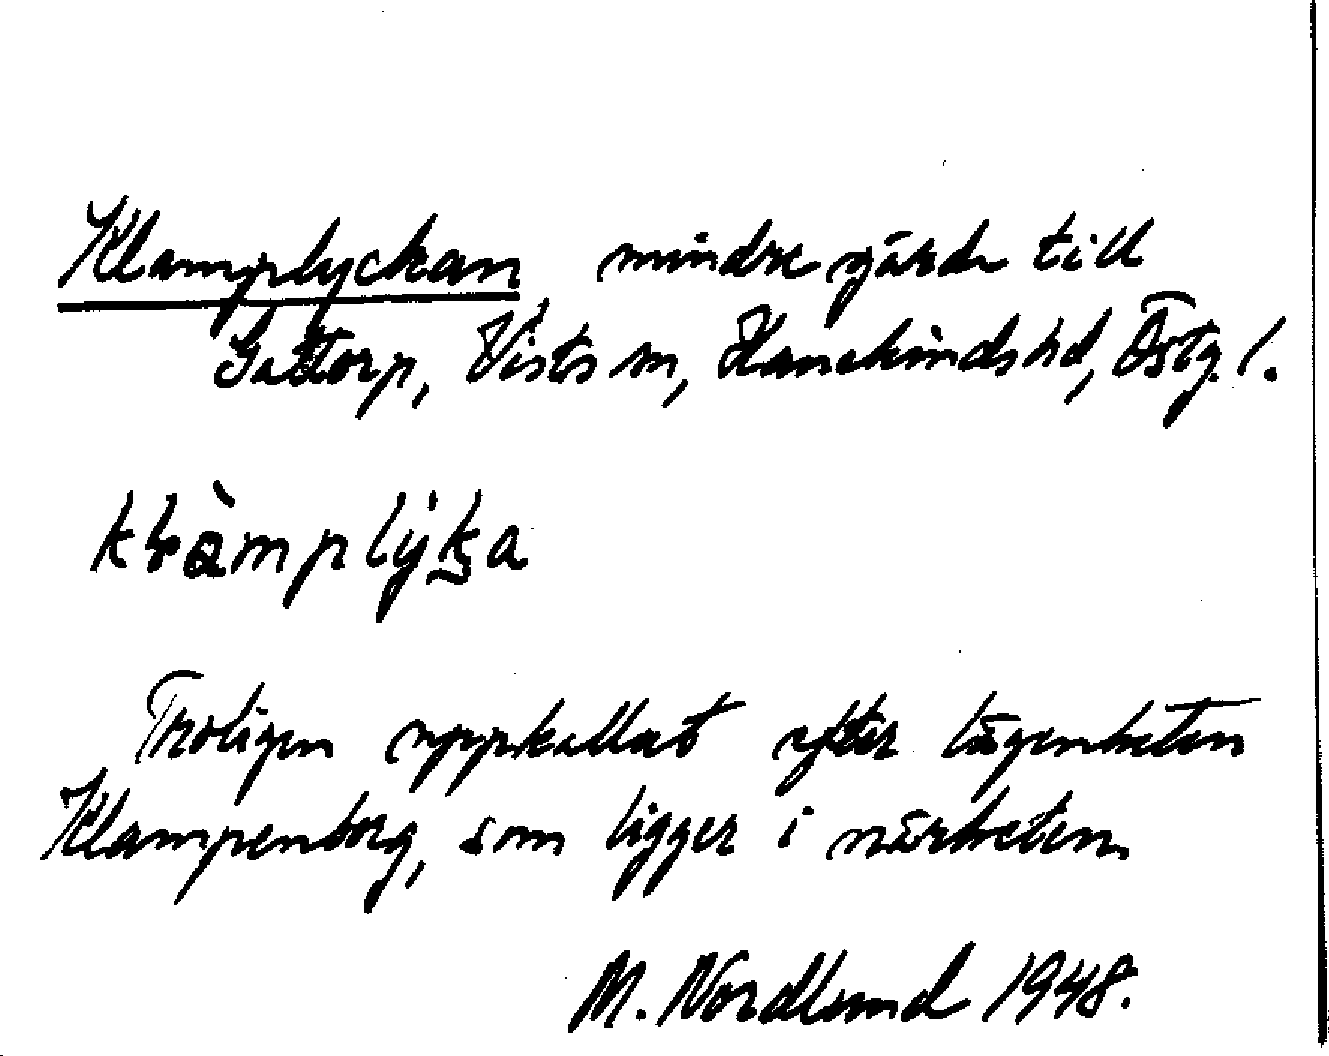 Klamplyckan, mindre gärde till
Gattorp, Vists sn, Hanekinds hd, Östg. l.
klàmplyka
Troligen uppkallat efter lägenheten
Klampenborg, som ligger i närheten.
M. Nordlund 1948.